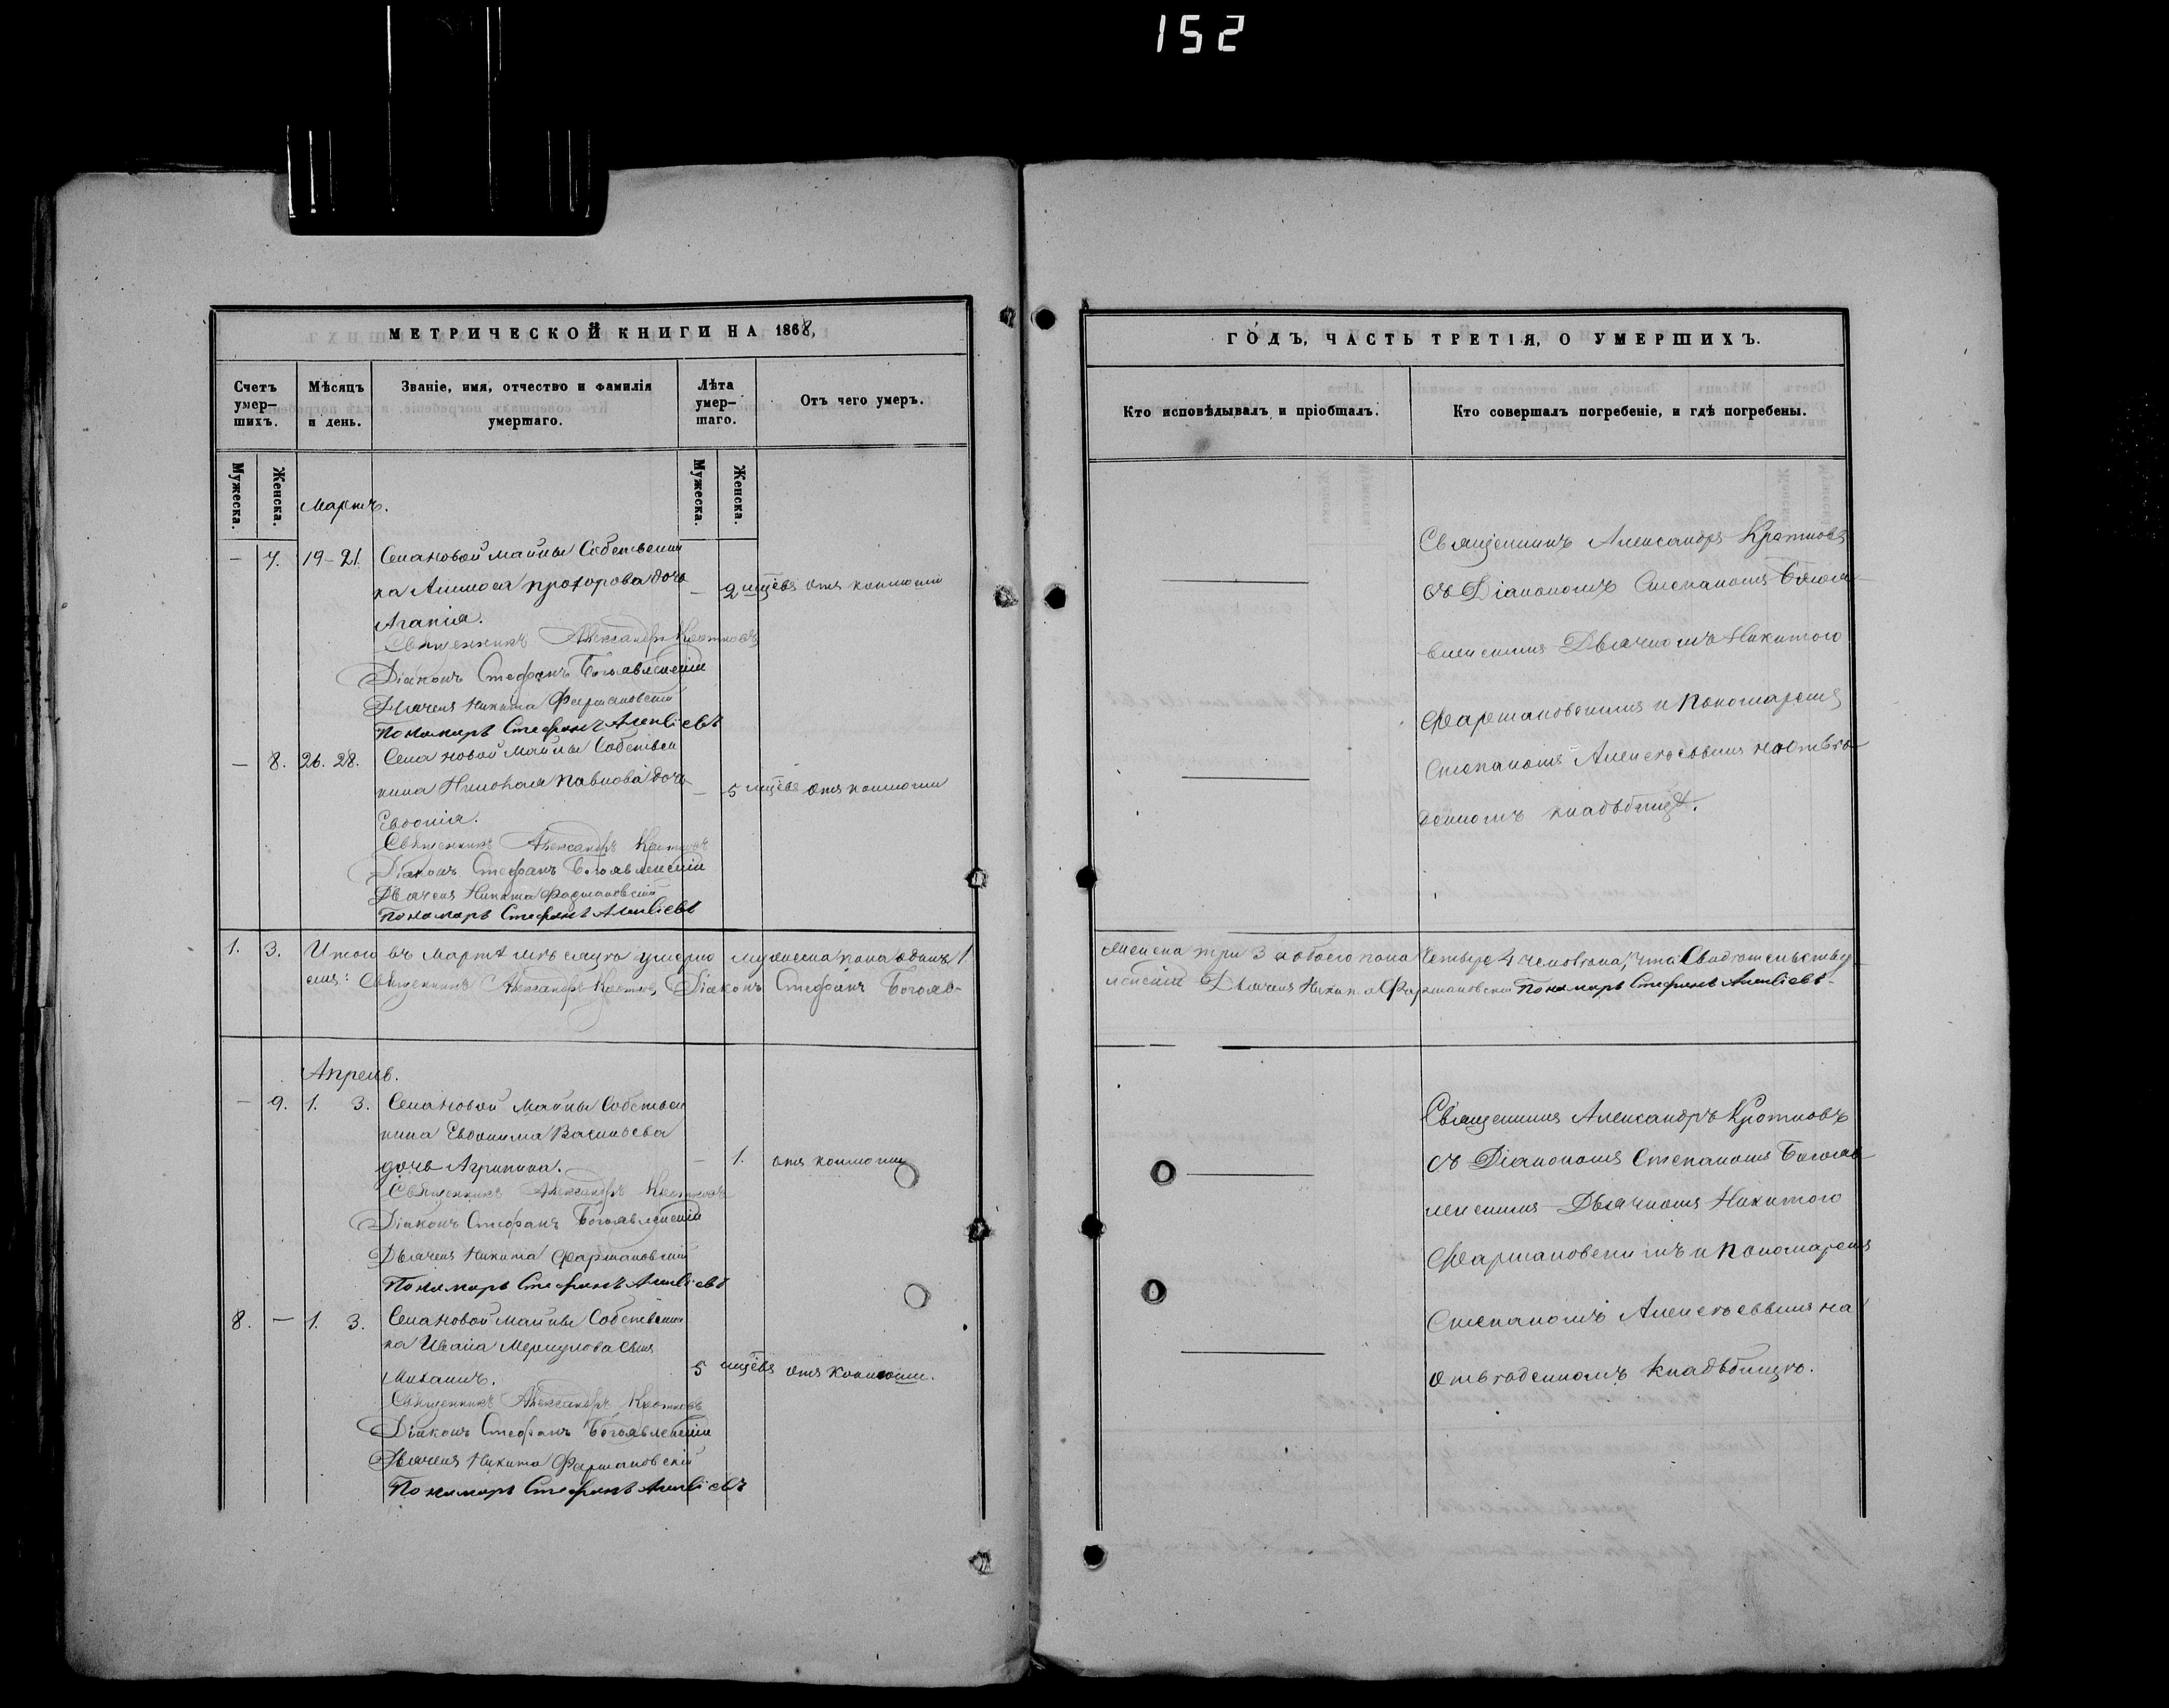 152
МЕТРИЧЕСКОЙ КНИГИ НА 1868,
Счетъ умер-шихъ.
Мѣсяцъ и день.
Званіе, имя, отчество и фамилія умершаго.
Лѣта умер-шаго.
Отъ чего умеръ.
Мужеска.
Женска.
Мужеска.
Женска.
Мартъ.
— 7. 19-21. Села новой майны Собственни
ка прохорова дочь — 2 мцевъ отъ колоти
Агапія.
Священникъ Александръ Кротковъ
Діаконъ Стефанъ Богоявленскій
Дьячекъ Никита Фармаковскій
Пономарь Стефанъ
— 8. 26. 28. Села новой Майны Собствен
ника Николая Павлова дочь — 5 мцевъ отъ колоти
Евдокія.
Священникъ Александръ Кротковъ
Діаконъ Стефанъ Богоявленскій
Дьячекъ Никита Фармаковскій
Пономарь Стефанъ
1. 3. Итого въ Мартѣ мѣсяцѣ умерло мужеска пола одинъ 1
Священникъ Александръ Кротковъ Діаконъ Стефанъ Богояв-
Апрель.
— 9. 1. 3. Села новой Майны Собствен
ника Евдокима Васильева
дочь Агрипина. — 1. отъ колоти
Священникъ Александръ Кротковъ
Діаконъ Стефанъ Богоявленскій
Дьячекъ Никита Фармаковскій
Пономарь Стефанъ
8. — 1. 3. Села новой майны Собственни
ка Ивана Меркулова сынъ
Михаилъ. 5 мцевъ отъ колоти.
Священникъ Александръ Кротковъ
Діаконъ Стефанъ Богоявленскій
Дьячекъ Никита Фармаковскій
Пономарь Стефанъ
ГОДЪ, ЧАСТЬ ТРЕТІЯ, О УМЕРШИХЪ.
Кто исповѣдывалъ и пріобщалъ.
Кто совершалъ погребеніе, и гдѣ погребены.
Священникъ Александръ Кротковъ
съ Діакономъ Степаномъ Богояв
ленскимъ Дьячкомъ Никитою
Фармаковскимъ и Пономаремъ
Степаномъ Алексѣевымъ на отве
денномъ кладбищѣ.
женска три 3 а обоего пола Четыре 4 человѣка, что Свидѣтельству
ленскій Дьячекъ Никита Фармаковскій Пономарь Стефанъ
Священникъ Александръ Кротковъ
съ Діакономъ Степаномъ Богояв
ленскимъ Дьячкомъ Никитою
Фармаковскимъ и Пономаремъ
Степаномъ Алексѣевымъ на
отведенномъ кладбищѣ.